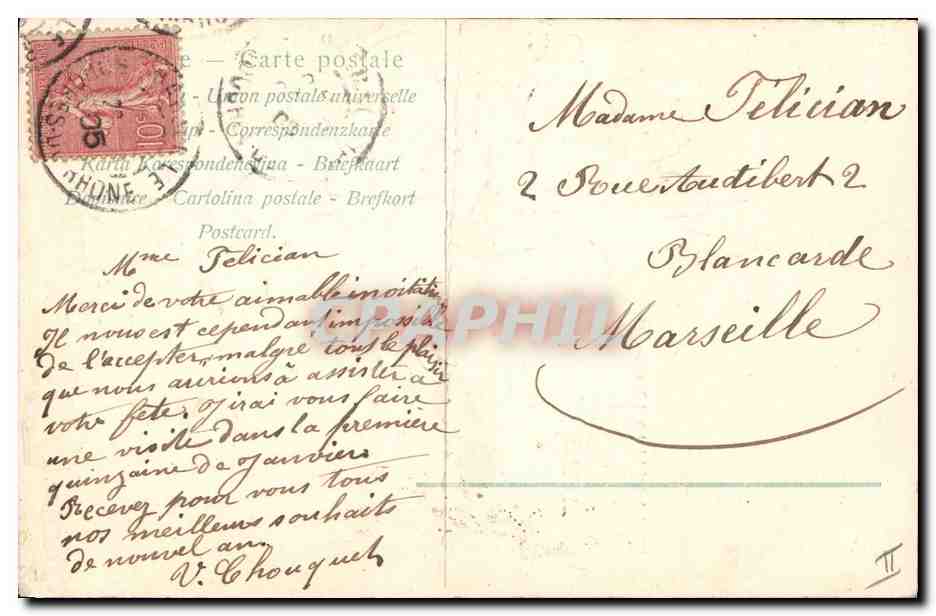 Carte postale
Union postale universelle
Correspondenzkarte
Karta Korespondencyjna - Briefkaart
Cartolina postale - Brefkort
Postcard.
10c
05
RHONE
Mme Félician
Merci de votre aimable invitation
Il nous est cependant impossible
de l'accepter, malgré tous le plaisir
que nous aurions à assister à
votre fête. J'irai vous faire
une visite dans la première
quinzaine de Janvier.
Recevez pour vous tous
nos meilleurs souhaits
de nouvel an.
V. Chouquet
Madame Félician
2 Rue Audibert 2
Blancarde
Marseille
CARTAPHIL
II